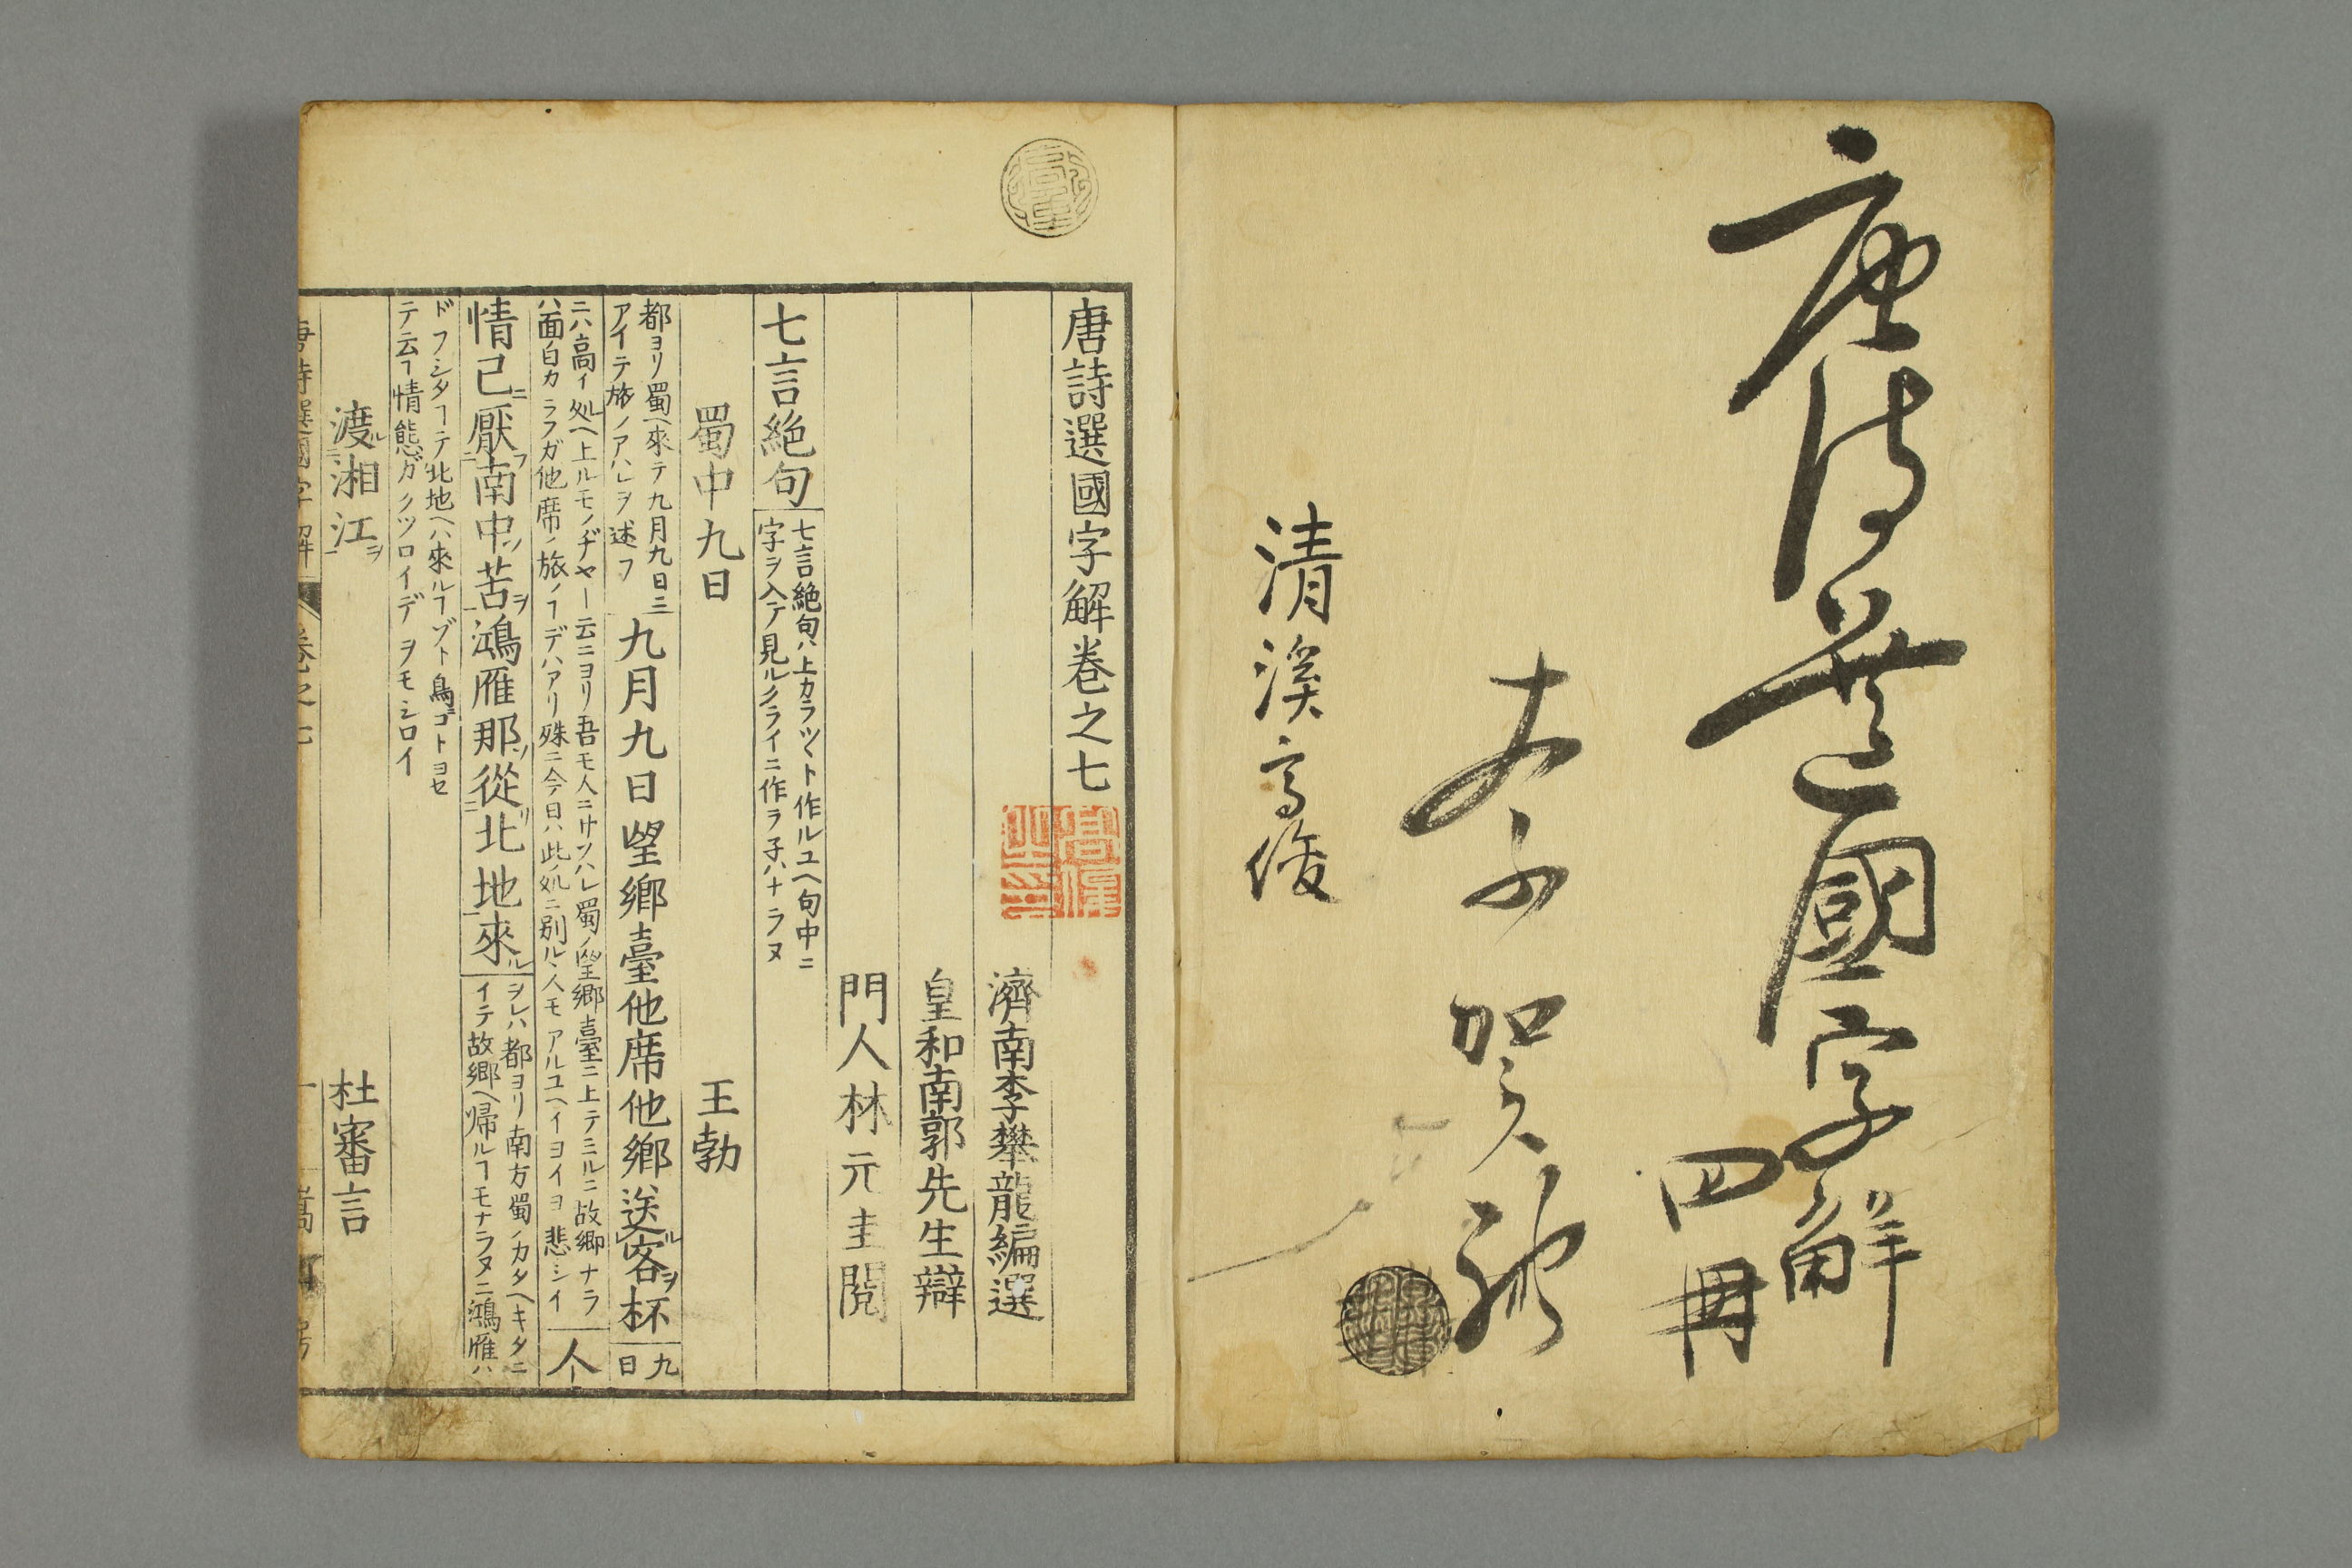 唐詩選國字解
四冊
清溪
唐詩選國字解卷之七
濟南李攀龍編選
皇和南郭先生辯
門人林元圭閲
七言絶句
七言絶句ハ上カラツヽト作ルユヘ句中ニ
字ヲ入テ見ルクライニ作ラ子ハナラヌ
蜀中九日 王勃
都ヨリ蜀ヘ來テ九月九日ニ
アイテ旅ノアハレヲ述フ
九月九日望鄉臺他席他鄉送ル客ヲ杯
九
日
ニハ高イ処ヘ上ルモノヂヤト云ニヨリ吾モ人ニサソハレ蜀ノ望郷臺ニ上テミルニ故郷ナラ
ハ面白カラフガ他席ノ旅ノヿデハアリ殊ニ今日ハ此処ニ別ルヽ人モアルユヘイヨイヨ悲シイ
人
情已ニ厭フ南中ノ苦ヲ鴻雁那ソ從リ北地來ル
ヲレハ都ヨリ南方蜀ノカタヘキタニ
イテ故郷ヘ帰ルヿモナラヌニ鴻雁ハ
ドフシタヿテ北地ヘハ來ルヿゾト鳥ゴトヨセ
テ云フ情態ガクツロイデヲモシロイ
渡ル湘江ヲ 杜審言
唐詩選國字解 卷之七